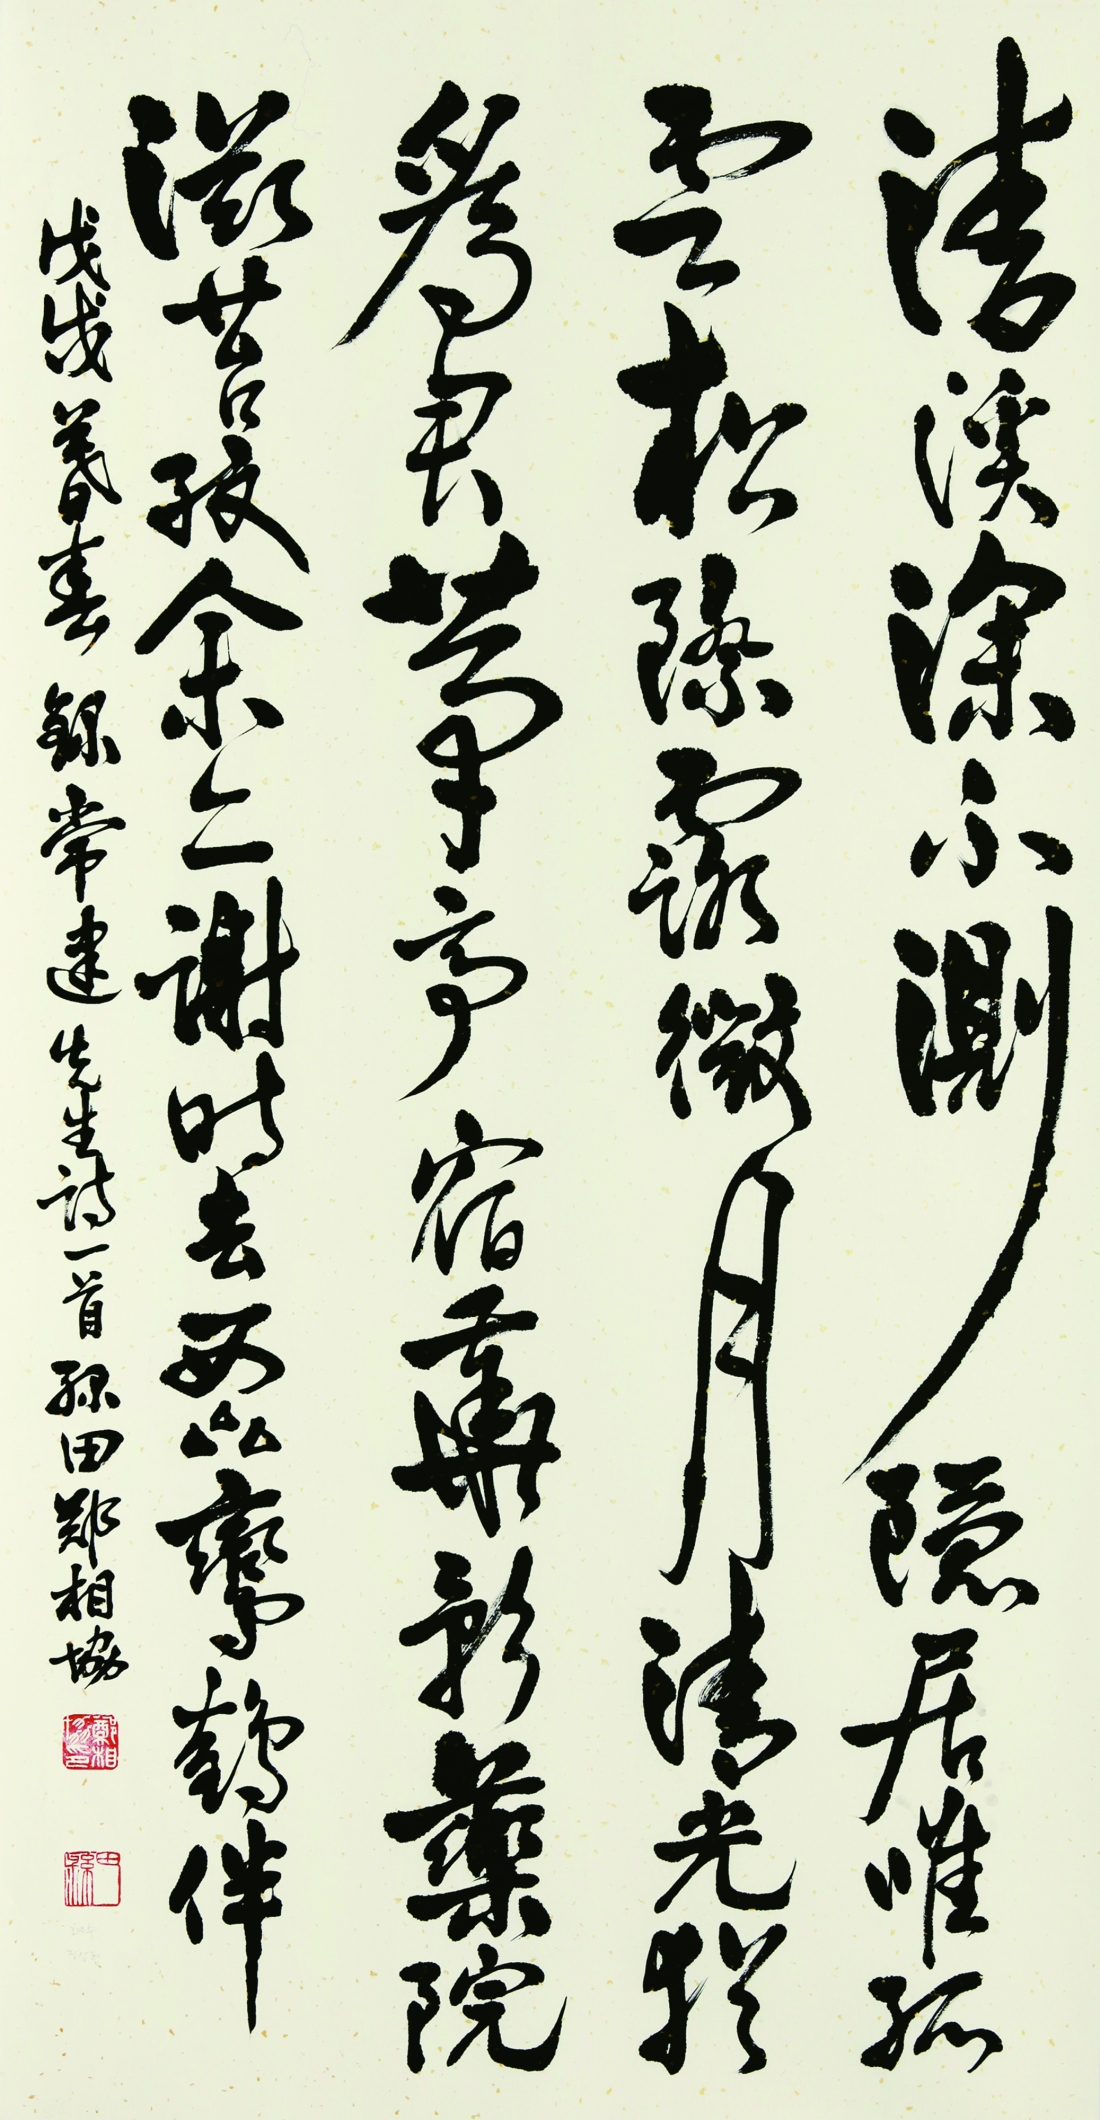 清溪深不測隱居唯孤
雲松際露微月清光猶
為君茅亭宿華影藥院
滋苔紋余亦謝时去西山鸞鶴伴
戊戌暮春錄常建先生詩一首孫田鄭相協
鄭相協印